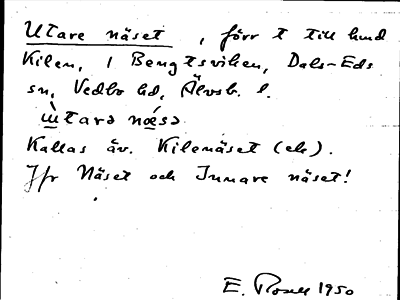 Utare näset, förr t till hmd
Kilen, i Bengtsviken, Dals-Eds
sn, Vedbo hd, Älvsb. l.
ɯ̀tarə næ̀sə
Kallas äv. Kilenäset (ek).
Jfr Näset och Innare näset!
E. Rosell 1950